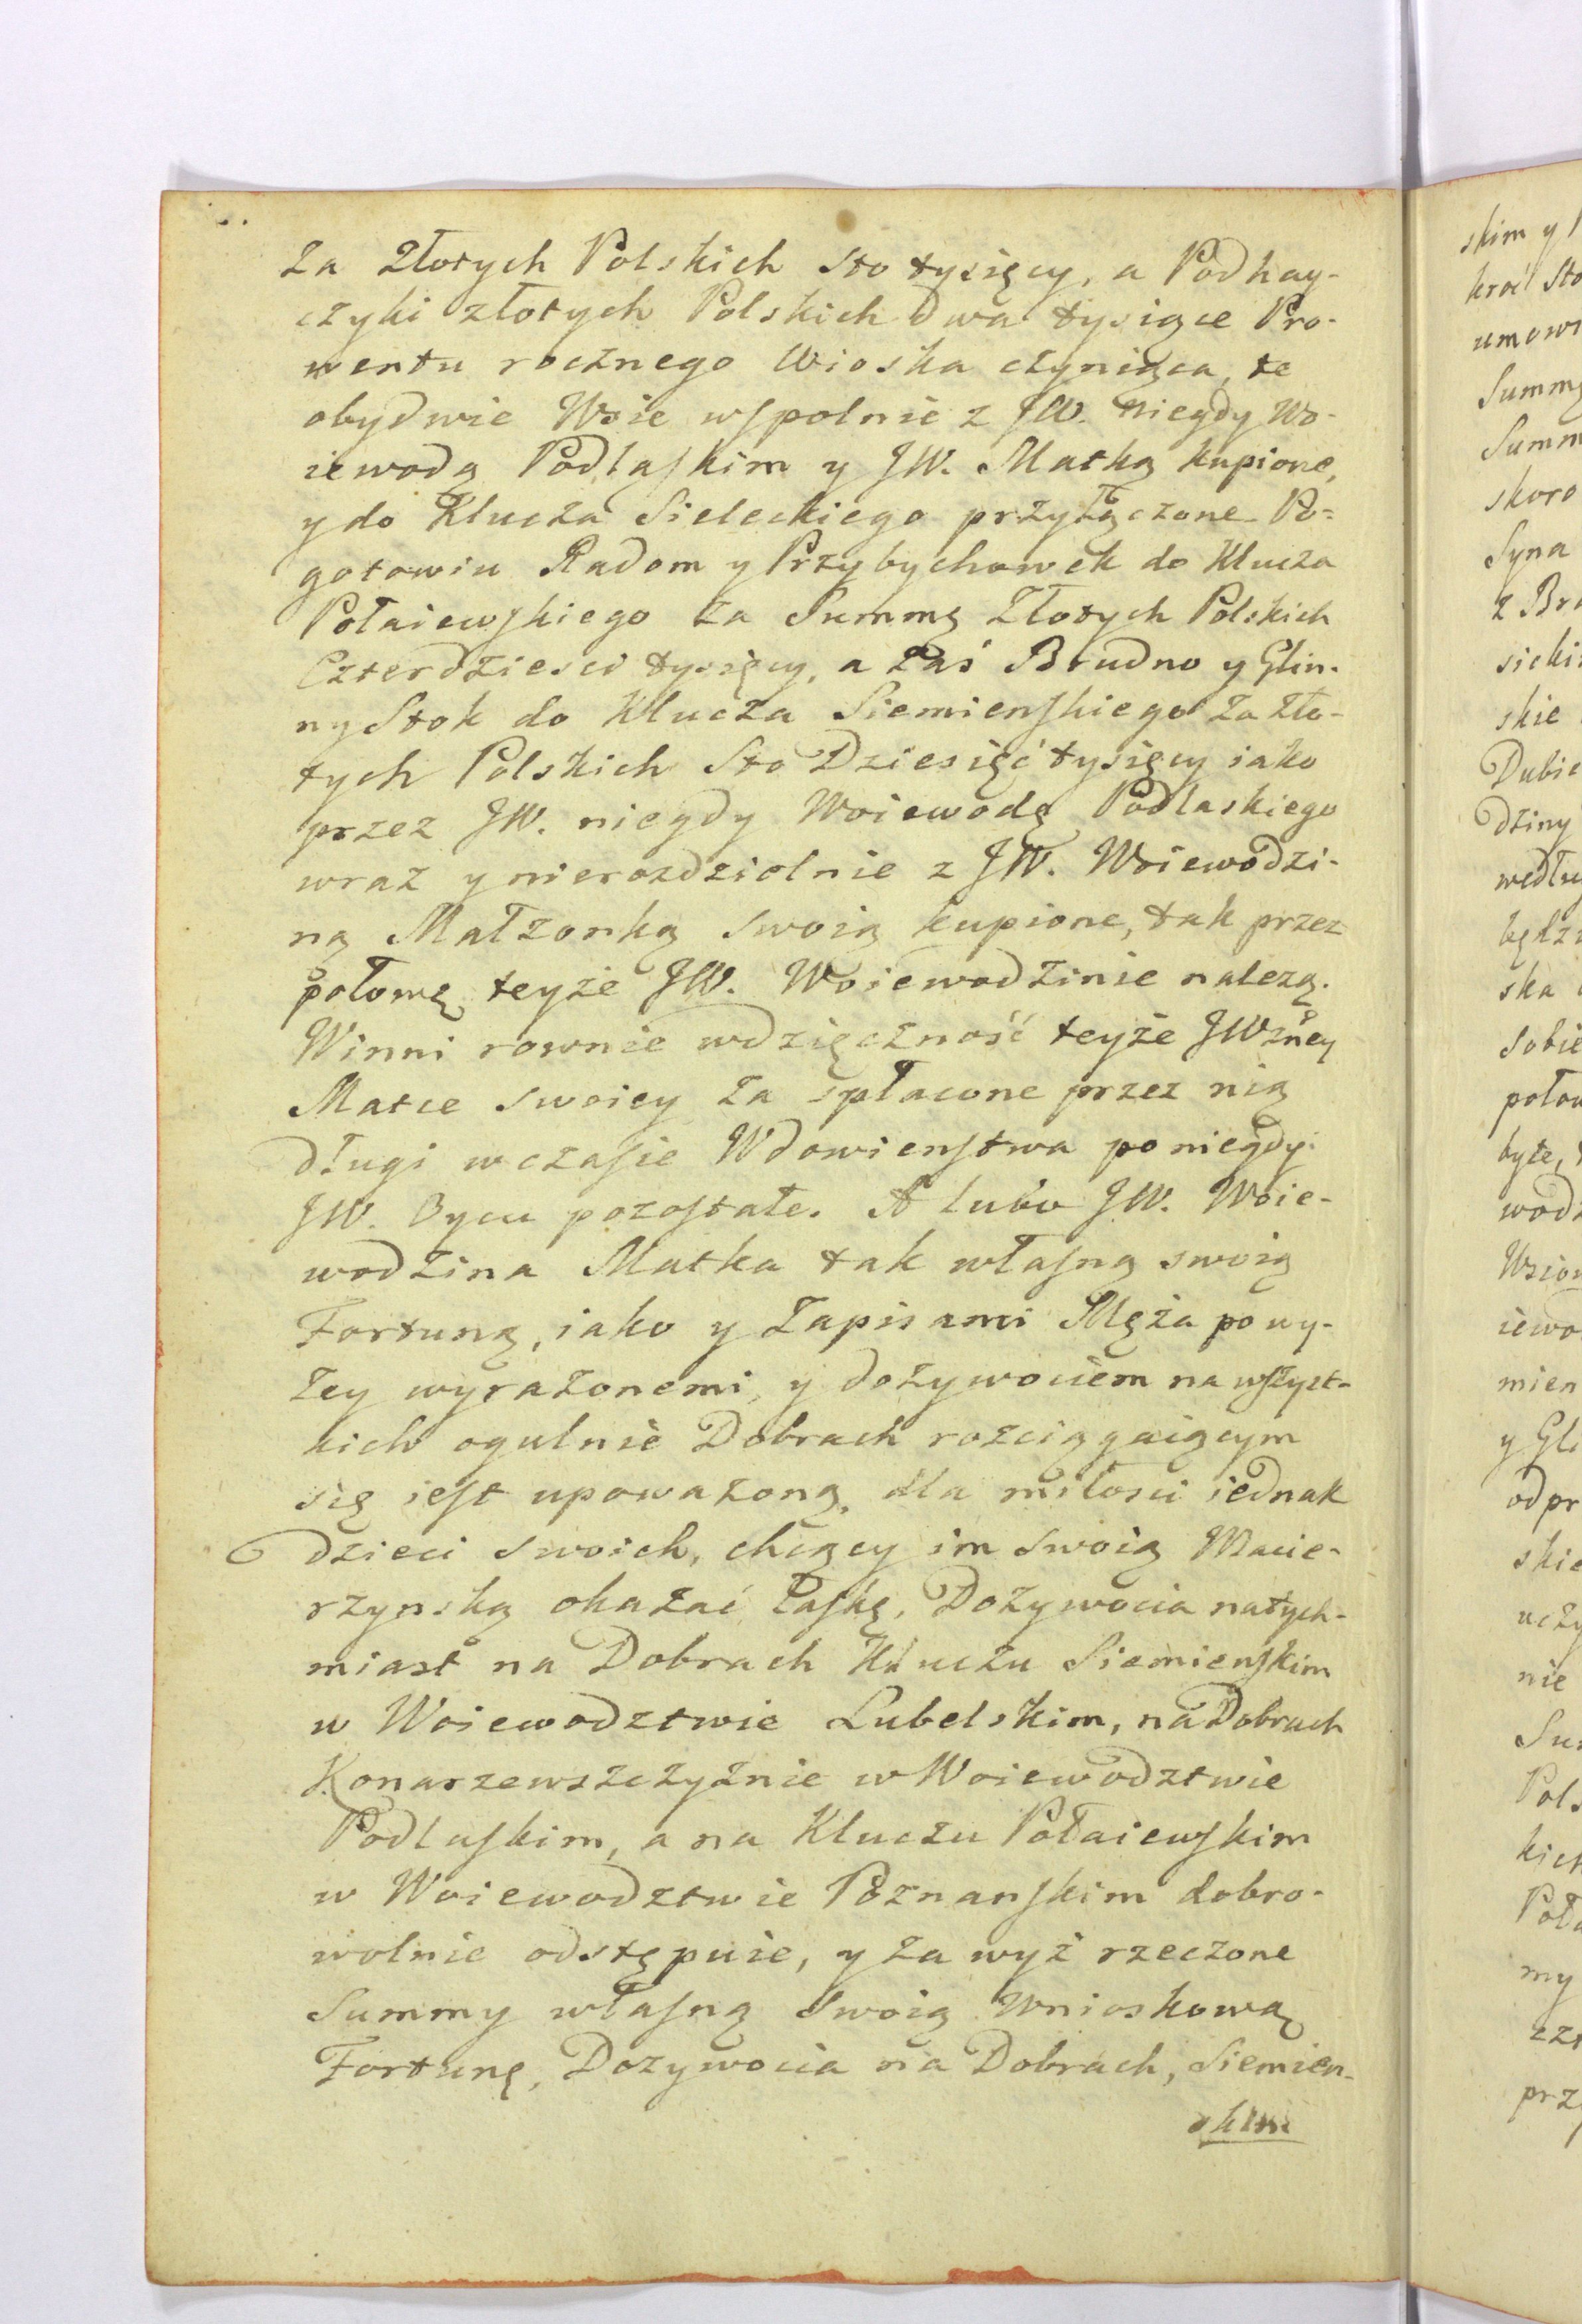 Za Złotych Polskich sto tysięcy, a Podhay-
czyki złotych Polskich dwa tysiące Pro-
wentu rocznego Wioska czyniąca, te
obydwie Wsie wspolnie z JW. niegdy Wo-
iewodą Podlaskim y JW. Matką kupione,
y do Klucza Sieleckiego przyłączone. Po-
gotowiu Radom y Przybychowek do Klucza
Połaiewskiego za Summę Złotych Polskich
Czterdziesci tysięcy, a zaś Brudno y Glin-
ny Stok do Klucza Siemienskiego za zło-
tych Polskich Sto Dziesięć tysięcy iako
przez JW. niegdy Woiewodę Podlaskiego
wraz y nierozdzielnie z JW. Woiewodzi-
ną Małzonką swoią kupione, tak przez
połowę teyże JW. Woiewodzinie nalezą.
Winni rownie wdzięczność teyże JWzney
Matce swoiey za spłacone przez nią
długi w czasie Wdowienstwa po niegdy
JW. Oycu pozostałe. A lubo JW. Woie-
wodzina Matka tak własną swoią
Fortuną, iako y Zapisami Męża powy-
zey wyrazonemi, y dożywociem na wszyst-
kich ogulnie Dobrach rozciągaiącym
się iest upoważoną, dla miłosci iednak
dzieci swoich, chcący im swoią Macie-
rzynską okazać łaskę, Dozywocia natych-
miast na Dobrach Kluczu Siemienskim
w Woiewodztwie Lubelskim, na Dobrach
Konarzewszczyżnie w Woiewodztwie
Podlaskim, a na Kluczu Połaiewskim
w Woiewodztwie Poznanskim dobro-
wolnie odstępuie, y za wyż rzeczone
Summy własną swoią Wnioskową
Fortunę, Dozywocia na Dobrach, Siemien-
skim
skim y
kroć Sto
Summ
skoro
Syna
z Bra
skie
dziny
ska
sobie
wodz
mien
y Gli
odpr
nie
Pols
my